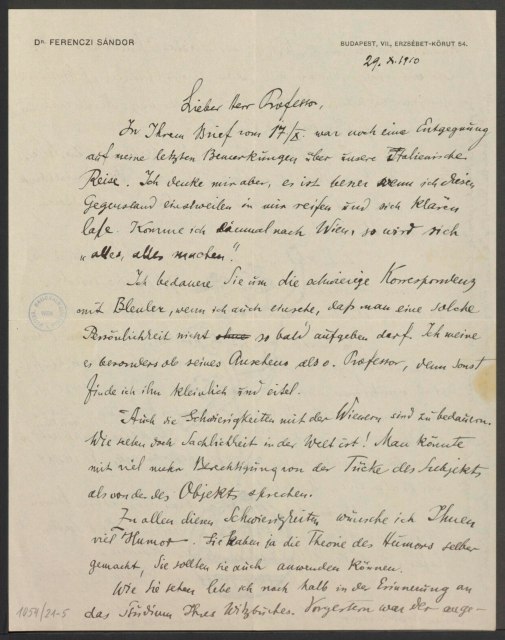 Dr. FERENCZI SÁNDOR
BUDAPEST, VII., ERZSÉBET-KÖRUT 54.
29. X. 1910
Lieber Herr Professor,
In Ihrem Brief vom 17/X. war noch eine Entgegnung
auf meine letzten Bemerkungen über unsere Italienische
Reise. Ich denke mir aber, es ist besser wenn ich diesen
Gegenstand einstweilen in mir reifen und sich klären
laße. Komme ich einmal nach Wien, so wird sich
"alles, alles machen".
Ich bedauere Sie um die schwierige Korrespondenz
mit Bleuler, wenn ich auch einsehe, daß man eine solche
Persönlichkeit nicht so bald aufgeben darf. Ich meine
es besonders ob seines Ansehens als o. Professor, denn sonst
finde ich ihn kleinlich und eitel.
Auch die Schwierigkeiten mit der Wienern sind zu bedauern.
Wie selten doch Sachlichkeit in der Welt ist! Man könnte
mit viel mehr Berechtigung von der Tücke des Subjekts
als von der des Objekts sprechen.
Zu allen diesen Schwierigkeiten wünsche ich Ihnen
viel Humor. Sie haben ja die Theorie des Humors selber
gemacht, Sie sollten sie auch anwenden können.
Wie Sie sehen lebe ich noch halb in der Erinnerung an
das Studium Ihres Witzbuches. Vorgestern war der ange-
1054/21-5